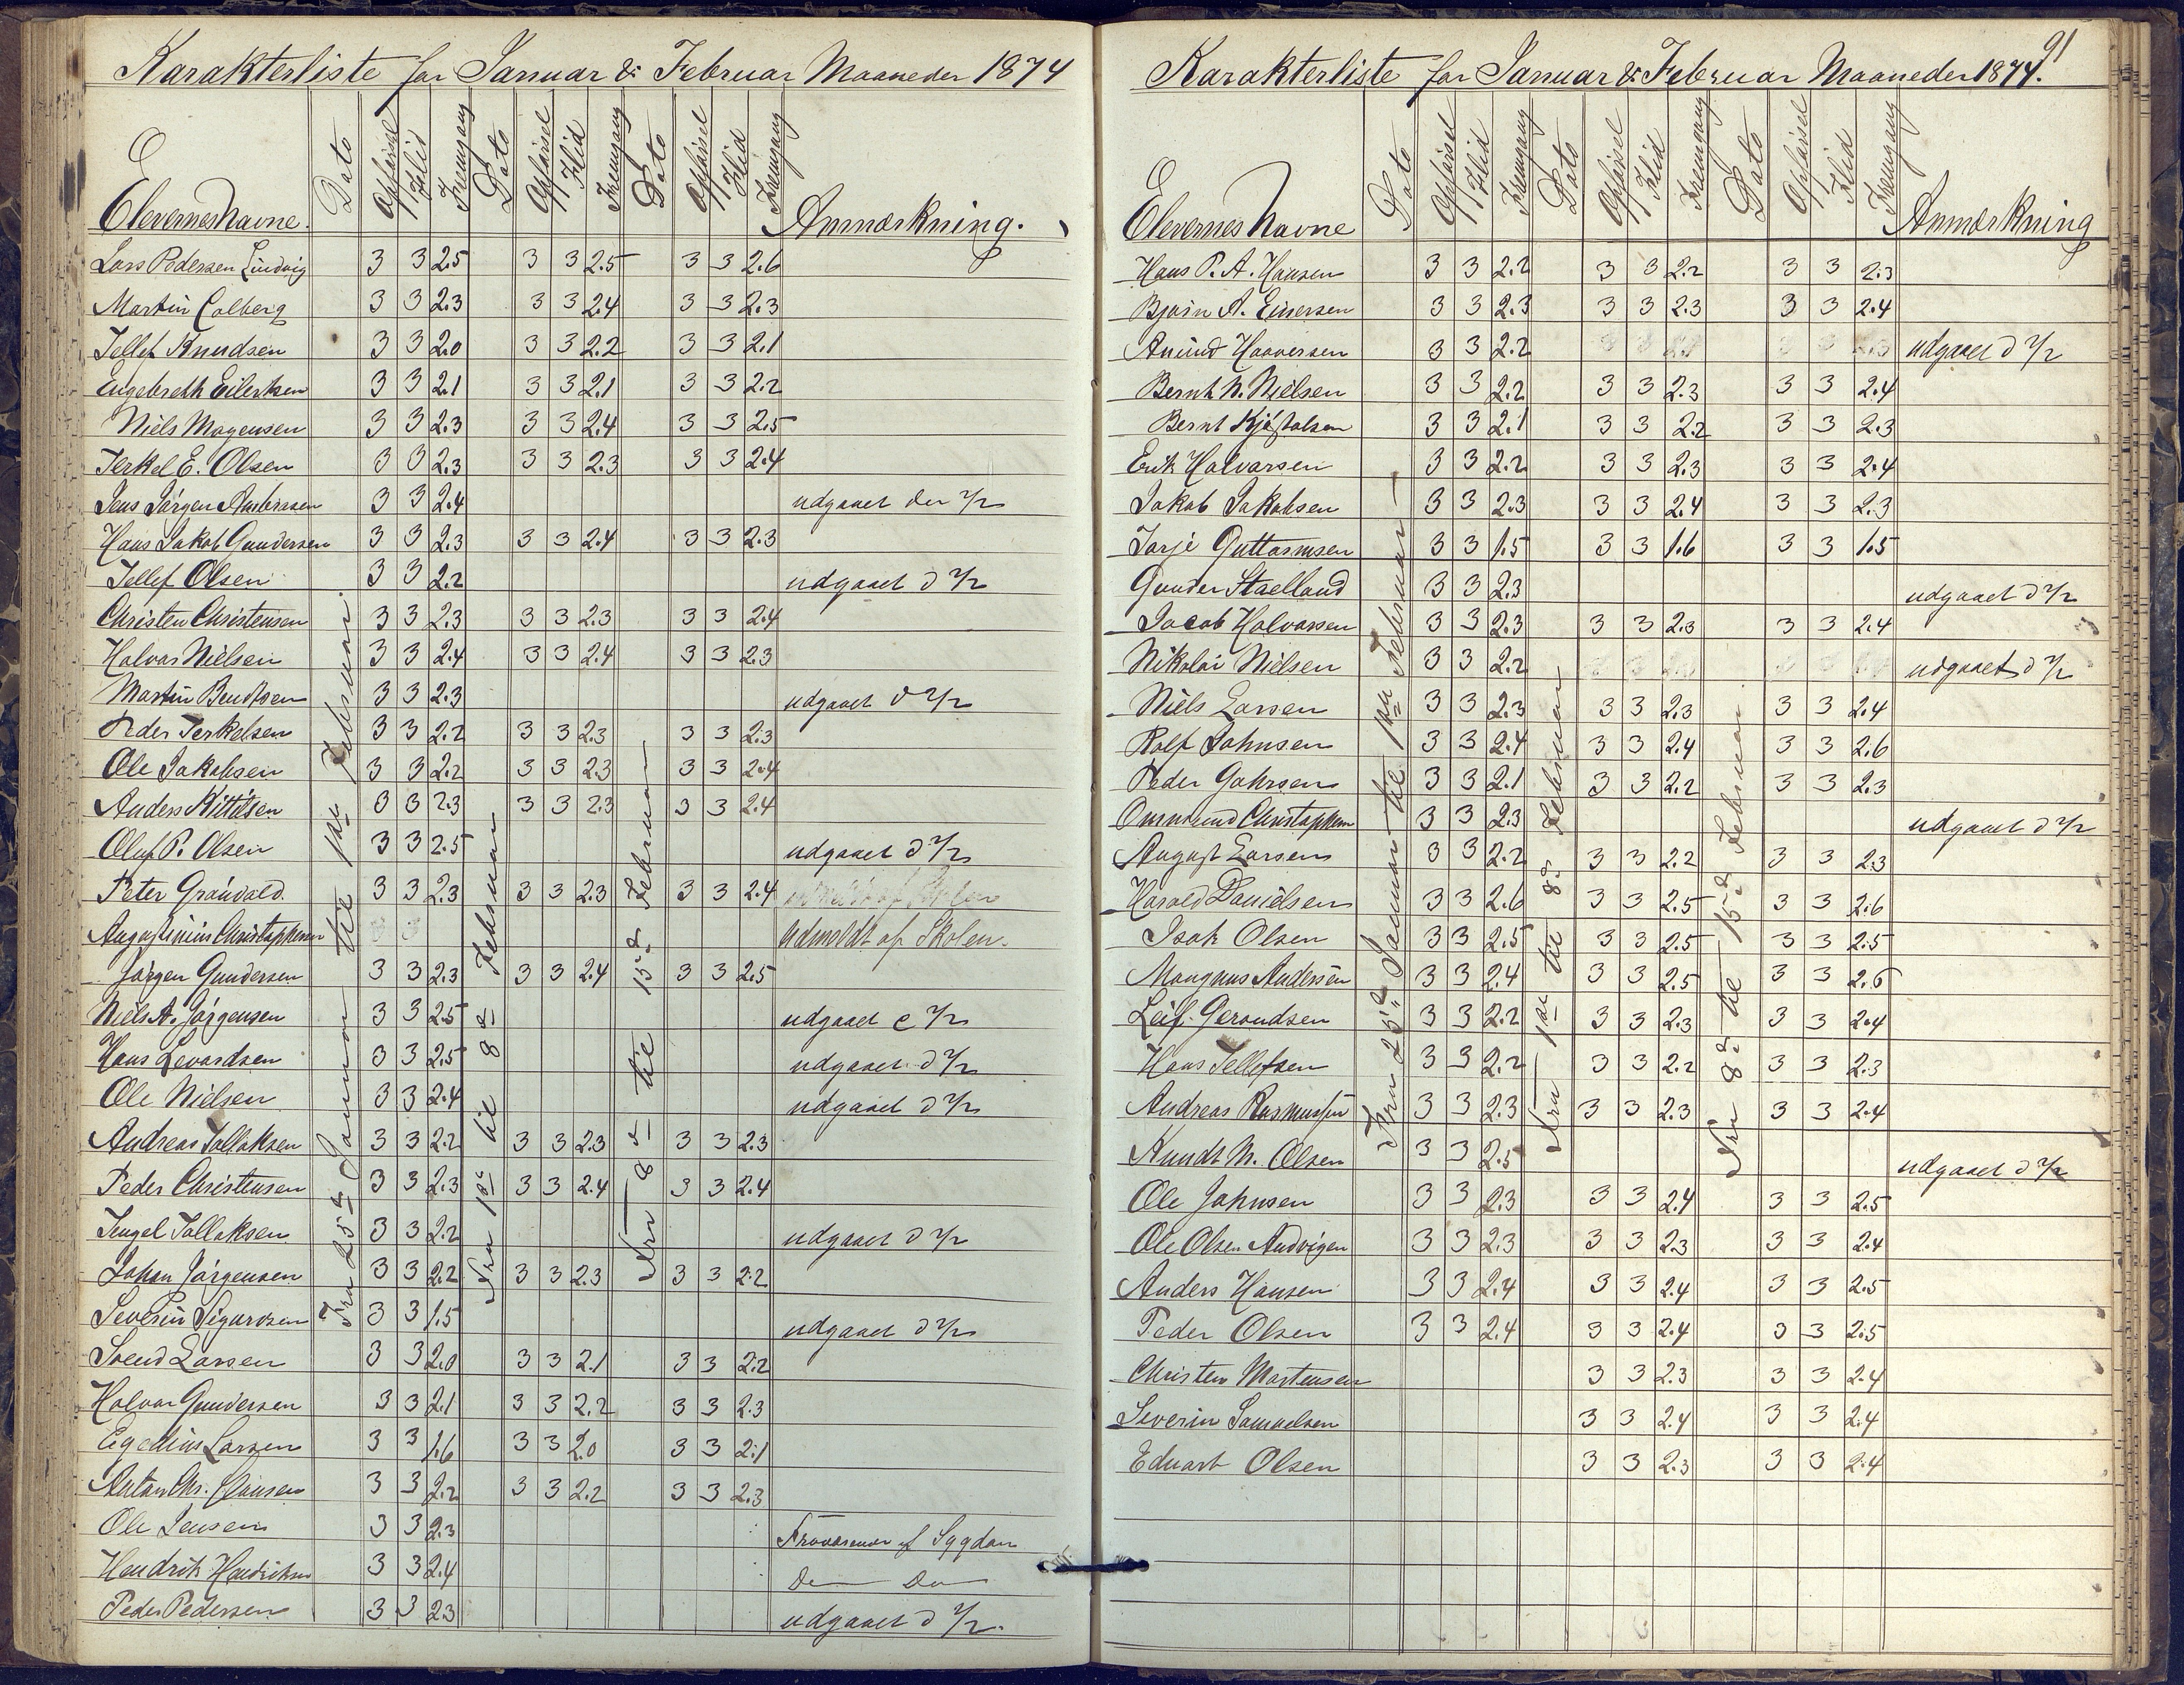 Karakterliste for Januar & Februar Maaneder 1874
Elevernes Navne. Dato Opførsel Flid Fremgang Dato Opførsel Flid Fremgang Dato Opførsel Flid Fremgang Anmærkning.
Fra 25de Januar til 1ste Februar.
Fra 1ste til 8de Februar
Fra 8de til 15de Februar
Lars Pedersen Lindvig 3 3 2.5 3 3 2.5 3 3 2.6
Martin Colberg 3 3 2.3 3 3 2.4 3 3 2.3
Tellef Knudsen 3 3 2.0 3 3 2.2 3 3 2.1
Engebreth Eilertsen 3 3 2.1 3 3 2.1 3 3 2.2
Niels Mogensen 3 3 2.3 3 3 2.4 3 3 2.5
Terkel E. Olsen 3 3 2.3 3 3 2.3 3 3 2.4
Jens Jørgen Ambrosen 3 3 2.4 udgaaet den 7/2
Hans Jakob Gundersen 3 3 2.3 3 3 2.4 3 3 2.3
Tellef Olsen 3 3 2.2 udgaaet d 7/2
Christen Christensen 3 3 2.3 3 3 2.3 3 3 2.4
Halvor Nielsen 3 3 2.4 3 3 2.4 3 3 2.3
Martin Bendtsen 3 3 2.3 udgaaet d 7/2
Peder Terkelsen 3 3 2.2 3 3 2.3 3 3 2.3
Ole Jakobsen 3 3 2.2 3 3 2.3 3 3 2.4
Anders Kittilsen 3 3 2.3 3 3 2.3 3 3 2.4
Oluf P. Olsen 3 3 2.5 udgaaet d 7/2
Peter Grønvold. 3 3 2.3 3 3 2.3 3 3 2.4
Augustinius Christophersen 3 3 Udmeldt af Skolen.
Jørgen Gundersen 3 3 2.3 3 3 2.4 3 3 2.5
Niels A. Jørgensen 3 3 2.5 udgaaet d 7/2
Hans Levordsen 3 3 2.5 udgaaet d 7/2
Ole Nielsen 3 3 2.4 udgaaet d 7/2
Andreas Tallaksen 3 3 2.2 3 3 2.3 3 3 2.3
Peder Christensen 3 3 2.3 3 3 2.4 3 3 2.4
Tengel Tallaksen 3 3 2.2 udgaaet d 7/2
Johan Jørgensen 3 3 2.2 3 3 2.3 3 3 2.2
Severin Sigurdsen 3 3 1.5 udgaaet d 7/2
Svend Larsen 3 3 2.0 3 3 2.1 3 3 2.2
Halvor Gundersen 3 3 2.1 3 3 2.2 3 3 2.3
Egedius Larsen 3 3 1.6 3 3 2.0 3 3 2.1
Anton Chr. Clausen 3 3 2.2 3 3 2.2 3 3 2.3
Ole Jensen 3 3 2.3 Fraværende af Sygdom
Hendrik Hendriksen 3 3 2.4 Do Do
Peder Pedersen 3 3 2.3 udgaaet d 7/2.
91
Karakterliste for Januar & Februar Maaneder 1874.
Elevernes Navne Dato Opførsel Flid Fremgang Dato Opførsel Flid Fremgang Dato Opførsel Flid Fremgang Anmærkning
Fra 25de Januar til 1ste Februar
Fra 1ste til 8de Februar
Fra 8de til 15de Februar
Hans P. A. Hansen 3 3 2.2 3 3 2.2 3 3 2.3
Bjørn A. Einersen 3 3 2.3 3 3 2.3 3 3 2.4
Anund Haaversen 3 3 2.2 udgaaet d 7/2
Bernt N. Nielsen 3 3 2.2 3 3 2.3 3 3 2.4
Bernt Kjøstolsen 3 3 2.1 3 3 2.2 3 3 2.3
Erik Halvorsen 3 3 2.2 3 3 2.3 3 3 2.4
Jakob Jakobsen 3 3 2.3 3 3 2.4 3 3 2.3
Torje Guttormsen 3 3 1.5 3 3 1.6 3 3 1.5
Gunder Staelland 3 3 2.3 udgaaet d 7/2
Jacob Halvorsen 3 3 2.3 3 3 2.3 3 3 2.4
Nikolai Nielsen 3 3 2.2 udgaaet d 7/2
Niels Larsen 3 3 2.3 3 3 2.3 3 3 2.4
Rolf Johnsen 3 3 2.4 3 3 2.4 3 3 2.6
Peder Gahrsen 3 3 2.1 3 3 2.2 3 3 2.3
Ommund Christophersen 3 3 2.3 udgaaet d 7/2
August Larsen 3 3 2.2 3 3 2.2 3 3 2.3
Harald Danielsen 3 3 2.6 3 3 2.5 3 3 2.6
Isak Olsen 3 3 2.5 3 3 2.5 3 3 2.5
Mangnus Andersen 3 3 2.4 3 3 2.5 3 3 2.6
Leif Geraudsen 3 3 2.2 3 3 2.3 3 3 2.4
Hans Tellefsen 3 3 2.2 3 3 2.2 3 3 2.3
Andreas Rasmussen 3 3 2.3 3 3 2.3 3 3 2.4
Knudt N. Olsen 3 3 2.5 udgaaet d 7/2
Ole Johnsen 3 3 2.3 3 3 2.4 3 3 2.5
Ole Olsen Audvigen 3 3 2.3 3 3 2.3 3 3 2.4
Anders Hansen 3 3 2.4 3 3 2.4 3 3 2.5
Peder Olsen 3 3 2.4 3 3 2.4 3 3 2.5
Christen Mortensen 3 3 2.3 3 3 2.4
Severin Samuelsen 3 3 2.4 3 3 2.4
Eduart Olsen 3 3 2.3 3 3 2.4